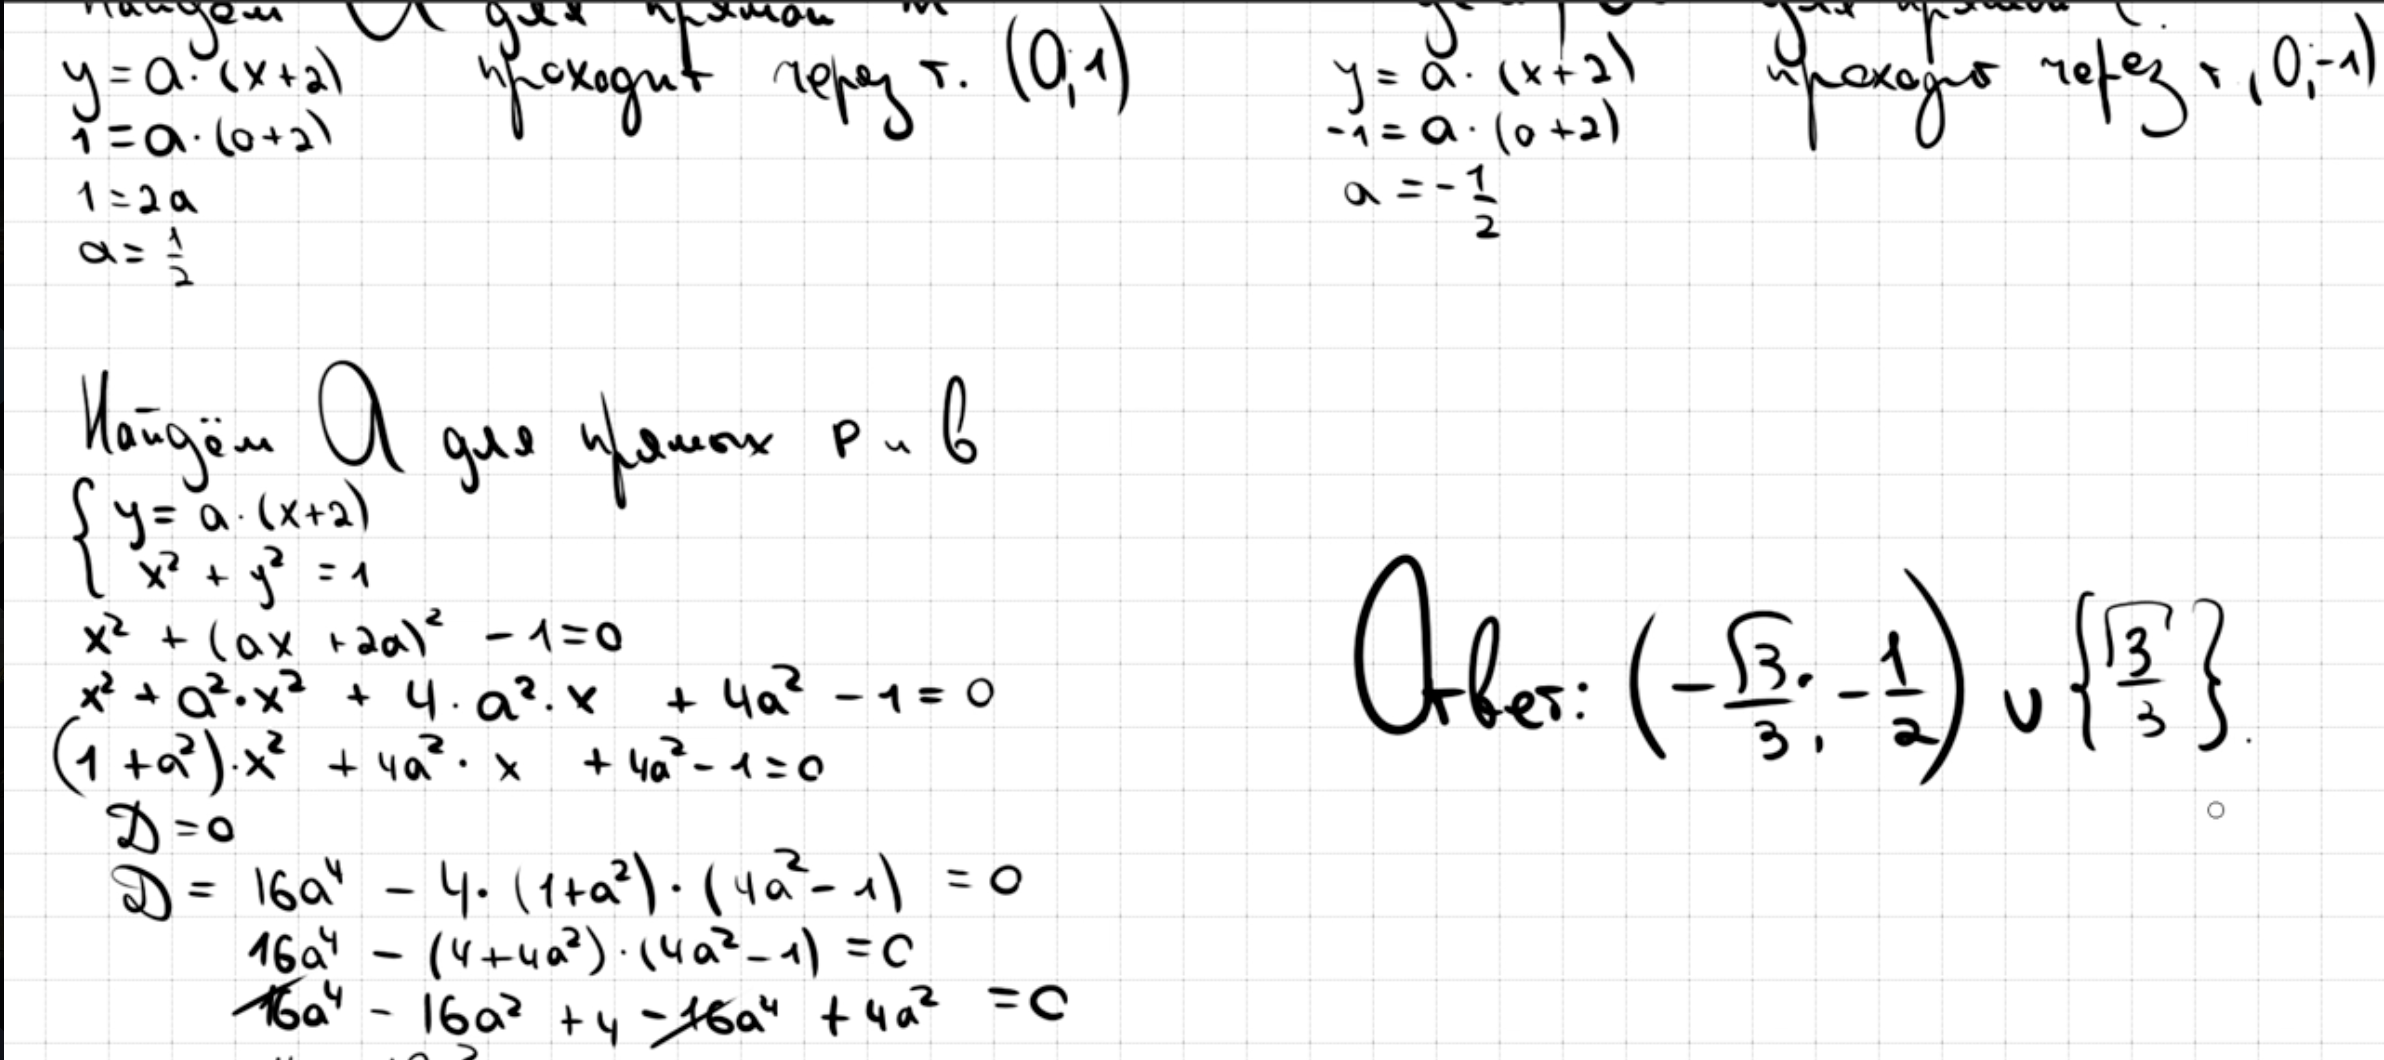 Найдём a для прямой m
y = a · (x+2) проходит через т. (0;1)
1 = a · (0+2)
1 = 2a
a = 1/2
для прямой
y = a · (x+2) проходит через т. (0;-1)
-1 = a · (0+2)
a = -1/2
Найдём a для прямых p и b
{ y = a · (x+2)
x² + y² = 1
x² + (ax + 2a)² - 1 = 0
x² + a² · x² + 4 · a² · x + 4a² - 1 = 0
(1 + a²) · x² + 4a² · x + 4a² - 1 = 0
D = 0
D = 16a⁴ - 4 · (1+a²) · (4a² - 1) = 0
16a⁴ - (4+4a²) · (4a² - 1) = 0
16a⁴ - 16a² + 4 - 16a⁴ + 4a² = 0
Ответ: (-√3/3; -1/2) ∪ {√3/3}.